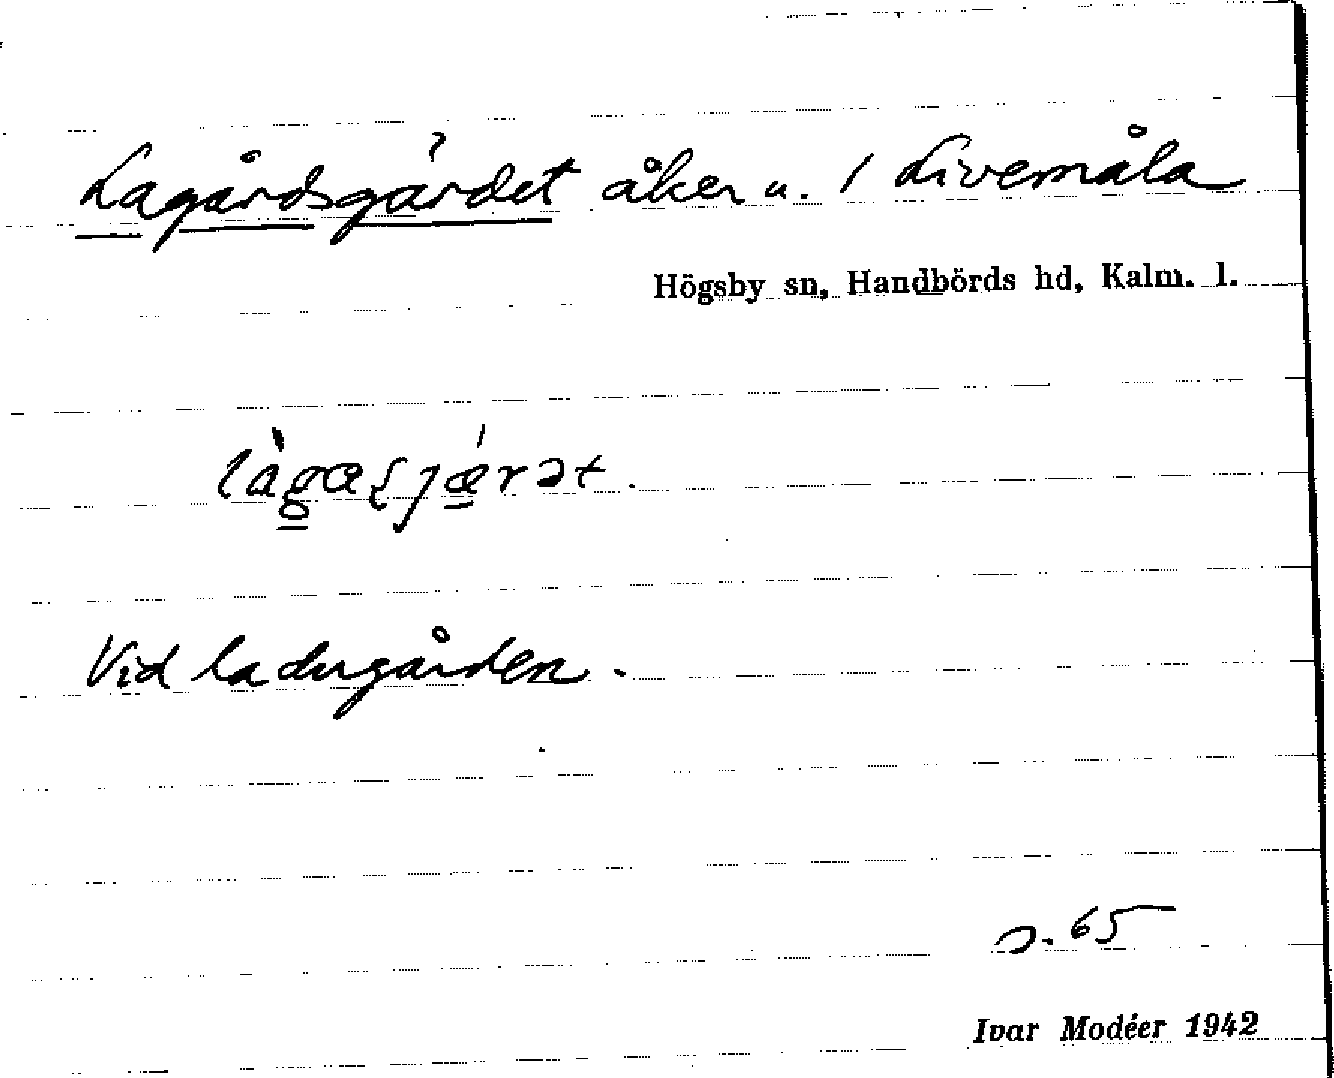 Lagårdsgärdet åker u. 1 Livemåla
Högsby sn, Handbörds hd, Kalm. l.
Vid ladugården.
s. 65
Ivar Modéer 1942